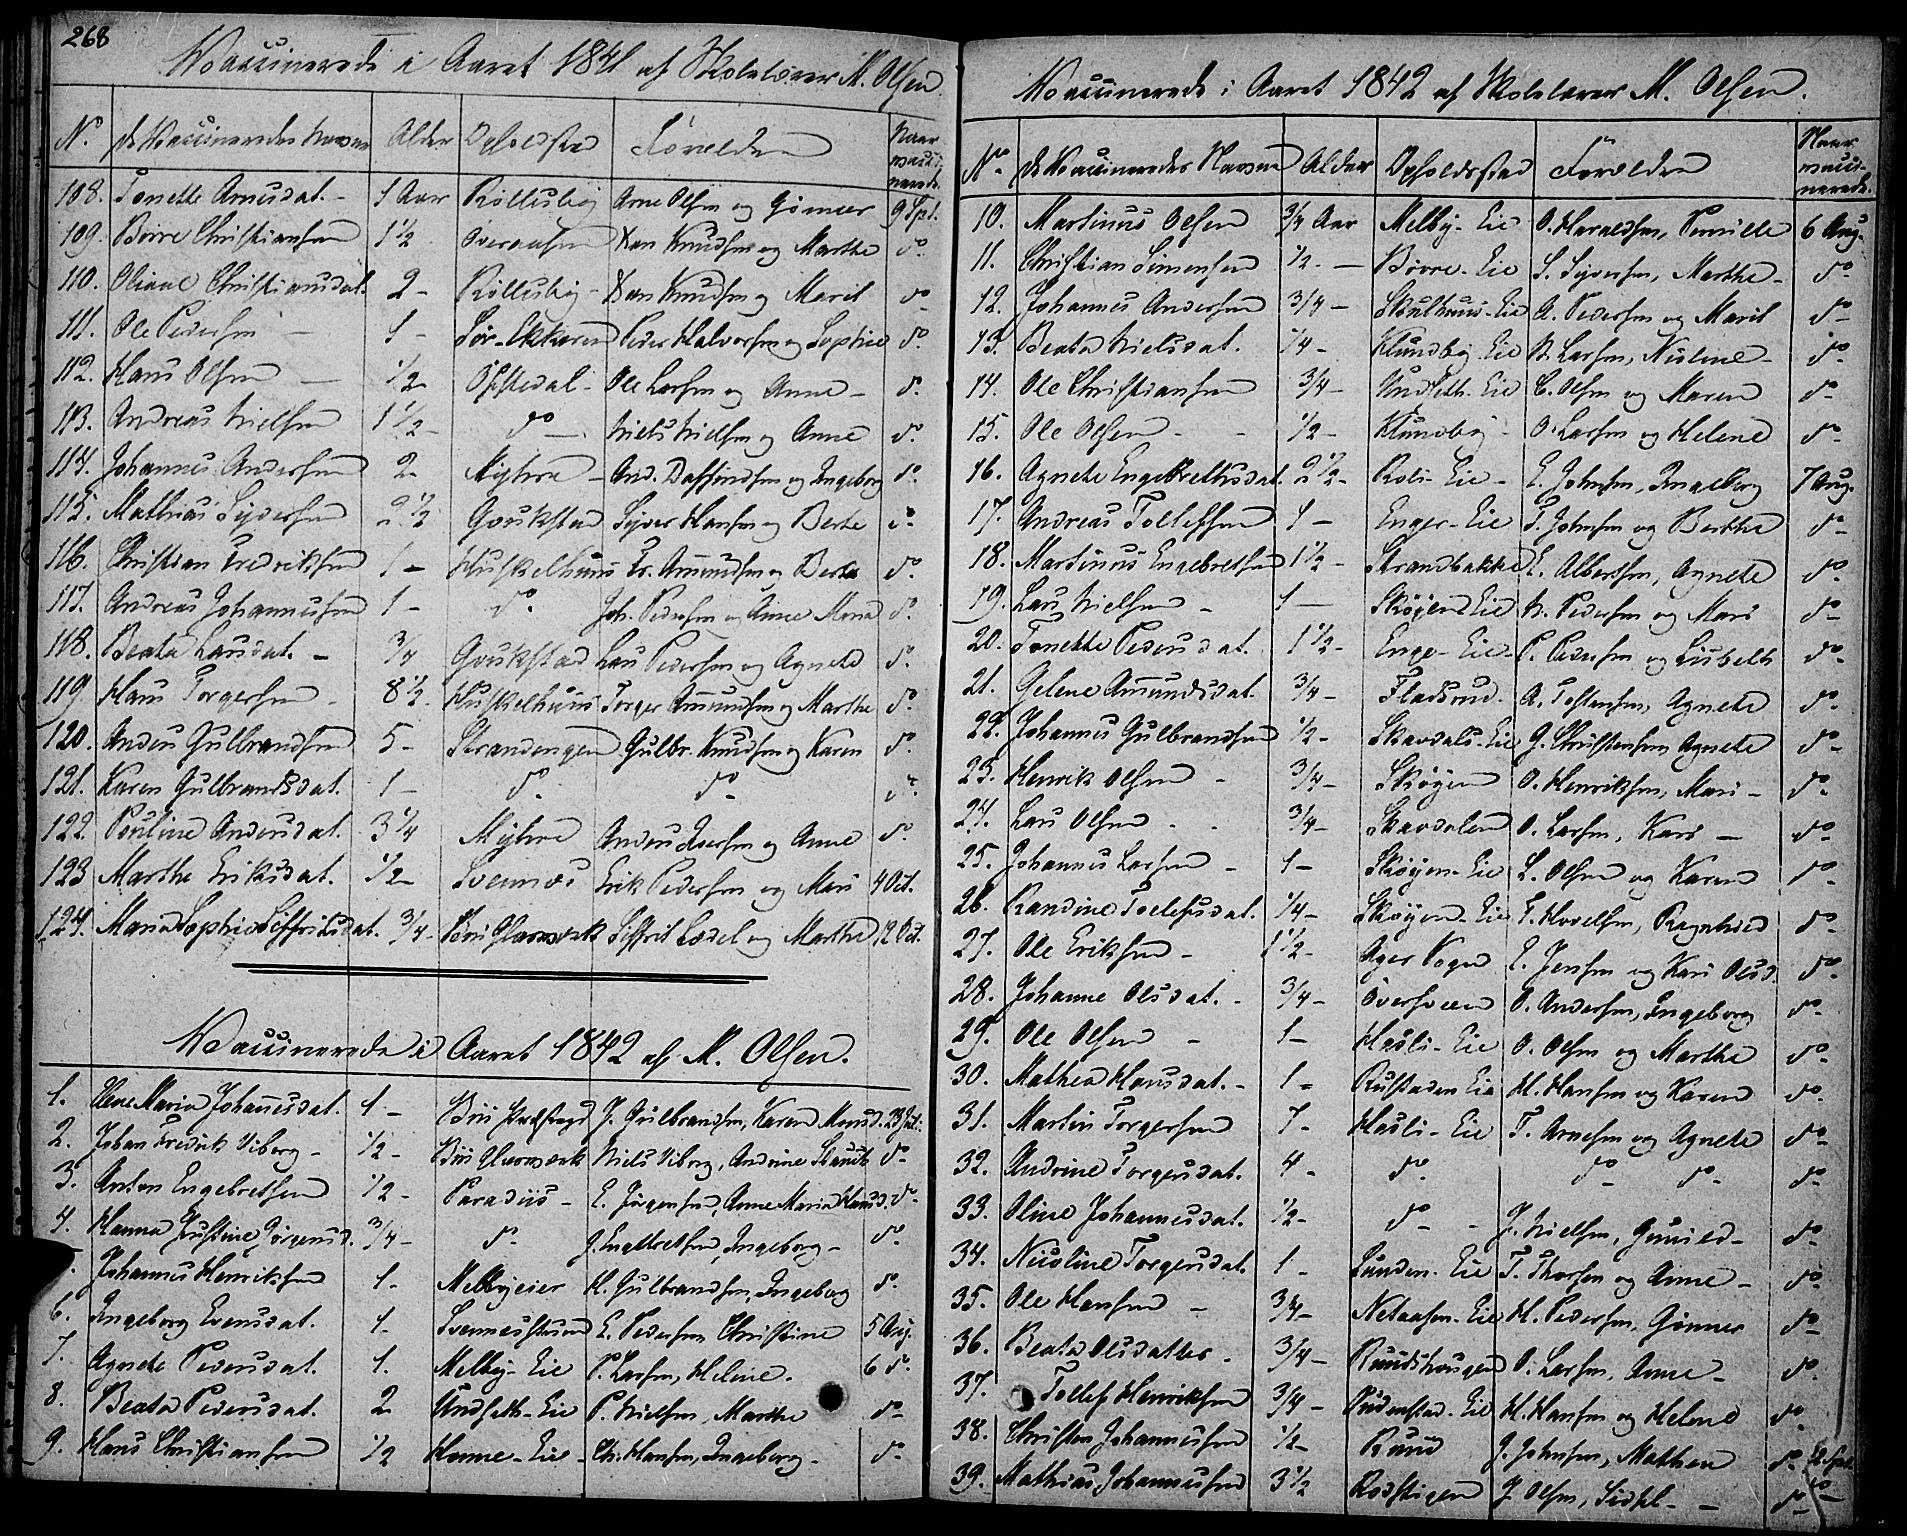 268
Vaccinerede i Aaret 1841 af Skolelærer M. Olsen
N. de Vaccineredes Navne Alder Opholdsted Forældre Naar vaccinerede.
108. Tonette Arnesdat. - 1 Aar Røllesbÿ Arne Olsen og Gønner 9 Spt.
109. Børre Christiansen 1 1/2 Overaasen Xan Knudsen og Marthe do.
110. Oliane Christiansdat. 2 - Røllesbÿ - Xan Knudsen og Marit do
111. Ole Pedersen - 1 - Sør-Ekkeren Peder Halvorsen og Sophie do.
112. Hans Olsen - 1/2 - Opsedal - Ole Larsen og Anne - do.
113. Andreas Nielsen 1 1/2 - do - Niels Nielsen og Anne do.
114. Johannes Andersen 2 - And. Daffindsen og Ingeborg do.
115. Mathias Syversen 2 1/2 Goukstad Syver Hansen og Berte do
116. Christian Fredriksen 1 - Huskelhuus Fr. Amundsen og Berte do.
117. Andreas Johannessen 1 - do. Joh. Pedersen og Anne Maria do.
118. Beata Larsdat. - 3/4 Goukstad Lars Pedersen og Agnete do.
119. Hans Torgersen - 8 1/2 - Huskelhuus Torger Amundsen og Marthe do.
120. Anders Gulbrandsen 5 - Strandengen Gulbr. Knudsen og Karen do.
121. Karen Gulbrandsdat. 1 - do. do - do
122. Pauline Andersdat. 3 1/4 Anders Iversen og Anne do.
123 Marthe Eriksdat. 1/2 - Svennæs Erik Pedersen og Mari 4 Oct.
124. Maria Sophie Siffritsdat. 3/4 - Biri Glasværk Siffrit Lædel og Marthe 12 Oct.
Vaccinerede i Aaret 1842 af M. Olsen.
1. Lene Maria Johannesdat. 1 - Biri Præstegd J. Gulbrandsen, Karen Monsd. 23 Juli.
2. Johan Fredrik Viborg - 1/2 - Biri Glasværk Niels Viborg, Andrine do -
3. Anton Engebretsen 1/2 - Paradiis - E. Jørgensen, Anne Maria Hansd. do -
4. Hanna Justine Jørgensd. 3/4 - do - J. Engebretsen, Ingeborg - do.
Johannes Henriksen 1 - Melbyeier H. Gulbrandsen, Ingeborg do.
6. Ingeborg Evensdat. 1 - Svennesstuen E. Pedersen Christine 5 Aug.
7. Agnete Pedersdat. 1. Melby-Eie P. Larsen, Helene. 6 do.
8. Beata Pedersdat. 2 Undseth-Eie P. Nielsen, Marthe do -
9. Hans Christiansen 1/2 Honne-Eie - Ch. Hansen, Ingeborg - do -
Vaccinerede i Aaret 1842 af Skolelærer M. Olsen.
No. de Vaccineredes Navne Alder Opholdssted Forældre Naar vaccinerede.
10. Martinus Olsen 3/4 Aar Melby-Eie O. Haraldsen, Pernille 6 Aug.
11. Christian Simensen 1/2 - Børre-Eie S. Syversen, Marthe - do
12. Johannes Andersen 3/4 - Skulhuus-Eie A. Pedersen og Marit do -
13. Beata Nielsdat. 1/4 - Klundby-Eie N. Larsen, Nielene - do -
14. Ole Christiansen 3/4 - Undseth-Eie C. Olsen og Maren do -
15. Ole Olsen - 1/2 - Klundby - O. Larsen og Helene do -
16. Agnete Engebrethsdat. 2 1/2 - Roli-Eie - E. Johnsen, Ingeborg 7 Aug.
17. Andreas Tollefsen 1 - Enger-Eie T. Johnsen og Berthe do -
18. Martinus Engebretsen 1 1/2 - Strandbakke E. Albertsen, Agnete do -
19. Lars Nielsen - 1 - Skøyen Eie N. Pedersen og Mari do -
20. Tonette Pedersdat. 1 1/2 - Enge-Eie - P. Pedersen og Lisbeth do -
21. Gelene Amundsdat. 3/4 - Fladsrud - A. Tostensen, Agnete do -
22. Johannes Gulbrandsen 1/2 - Skavdals-Eie G. Christensen Agnete do -
23. Henrik Olsen - 3/4 - Skøyen O. Henriksen, Mari - do -
24. Lars Olsen - 3/4 - Skavdalen O. Larsen, Kari - do -
25. Johannes Larsen - 1 - Skøyen-Eie L. Olsen og Karen do -
26. Randine Tollefsdat. 1/4 - Skøyen-Eie T. Hovelsen, Ragnhild do -
27. Ole Eriksen - 1 1/2 - Ager Sogn E. Jensen og Kari Olsd. do -
28. Johanne Olsdat. - 3/4 - Oversveen O. Andersen, Ingeborg do -
29. Ole Olsen - 1 - Hasli-Eie O. Olsen og Marthe do -
30. Mathea Hansdat. - 1 - Rustaden Eie H. Hansen og Karen do -
31. Martin Torgersen 7 - Hasli-Eie T. Arnesen og Agnete do -
32. Andrine Torgersdat. 4 - do - do - do - do -
33. Oline Johannesdat. 1/2 - do - J. Nielsen, Gunild - do -
34. Nicoline Torgersdat. 1 - Lunden-Eie T. Thorsen og Anne - do -
35. Ole Hansen - 3/4 - Netaasen-Eie H. Pedersen, Gønner do -
36. Beata Olsdatter. 3/4 - Ruudshaugen O. Larsen, Anne - do -
37. Tollef Henriksen 3/4 - Eie H. Hansen og Helene do -
38. Christen Johannessen 1/2 - Ruud J. Johnsen, Mathea do - 2 Spt
39. Mathias Johannessen 3 1/2 Rodstigen J. Olsen, Sidsel - do -